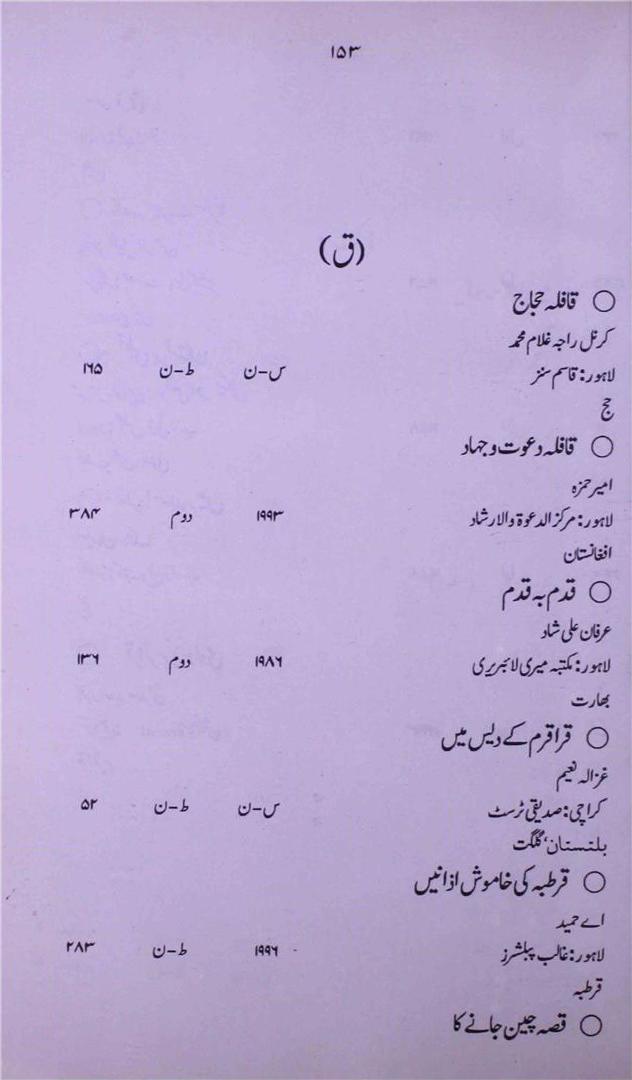 ۱۵۳
(ق)
○ قافلہ حجاج
کرنل راجہ غلام محمد
لاہور: قاسم سنز س-ن ط-ن ۱۶۵
حج
○ قافلہ دعوت و جہاد
امیر حمزہ
لاہور: مرکز الدعوۃ والارشاد ۱۹۹۳ دوم ۳۸۴
افغانستان
○ قدم بہ قدم
عرفان علی شاد
لاہور: مکتبہ میری لائبریری ۱۹۸۶ دوم ۱۳۶
بھارت
○ قراقرم کے دیس میں
غزالہ نعیم
کراچی: صدیقی ٹرسٹ س-ن ط-ن ۵۲
بلتستان، گلگت
○ قرطبہ کی خاموش اذانیں
اے حمید
لاہور: غالب پبلشرز ۱۹۹۶ ط-ن ۲۸۳
قرطبہ
○ قصہ چین جانے کا